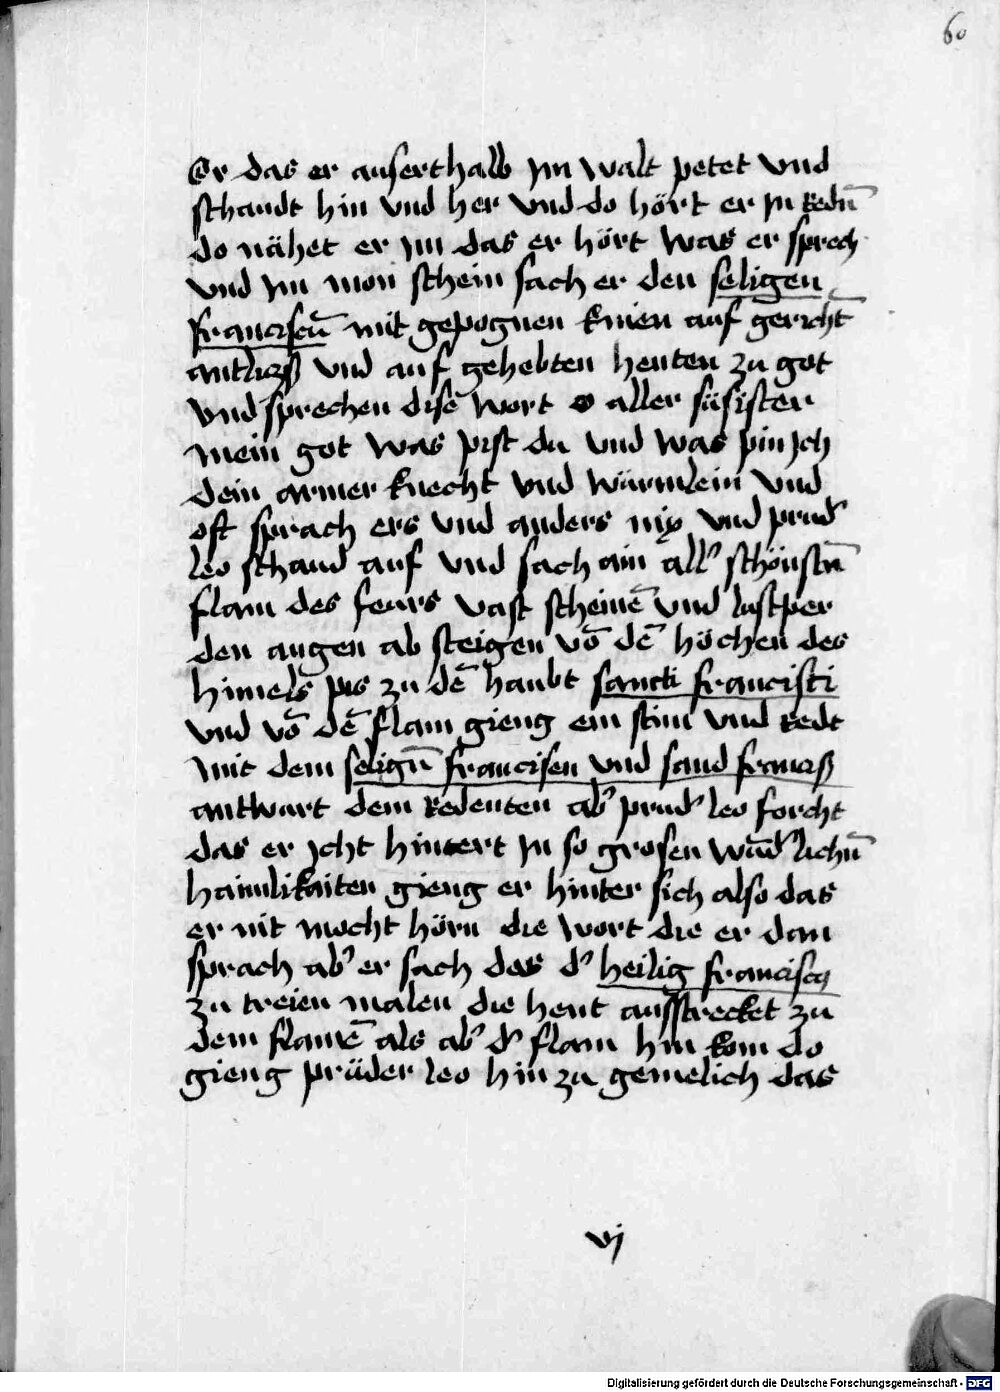 60
Er das er auserthalb jm walt petet vnd
schaudt hin vnd her vnd do hört er jn redn̄
do nähet er jm das er hört was er sprech
vnd jm mon schein sach er den seligen
franciscū mit gepognen knien auf gericht̄
antlicz vnd auf gehebten henten zu got
vnd sprechen disē wort o aller süsister
mein got was pist du vnd was pin jch
dein armer knecht vnd würmlein vnd
oft sprach ers vnd anders nix vnd prud᾽
leo schaud auf vnd sach ain all᾽ schönstn̄
flam des feurs vast scheinē vnd lustper
den augen ab steigen vō dē höchen des
himels pis zu dē haubt sancti francisci
vnd vō dē flam gieng ein stim vnd redt
mit dem selign̄ francisen vnd sand francis
antwurt dem redenten ab᾽ prud᾽ leo forcht
das er jcht hintert jn so grosen wūd᾽lichn̄
haimlikaiten gieng er hinter sich also das
er nit mocht hörn die wort die er dan
sprach ab᾽ er sach das d᾽ heilig franciscꝯ
zu treien malen die hent ausstrecket zu
dem flamē als ab᾽ d᾽ flam hin kom do
gieng prüder leo hin zu gemelich das
vj
Digitalisierung gefördert durch die Deutsche Forschungsgemeinschaft - DFG